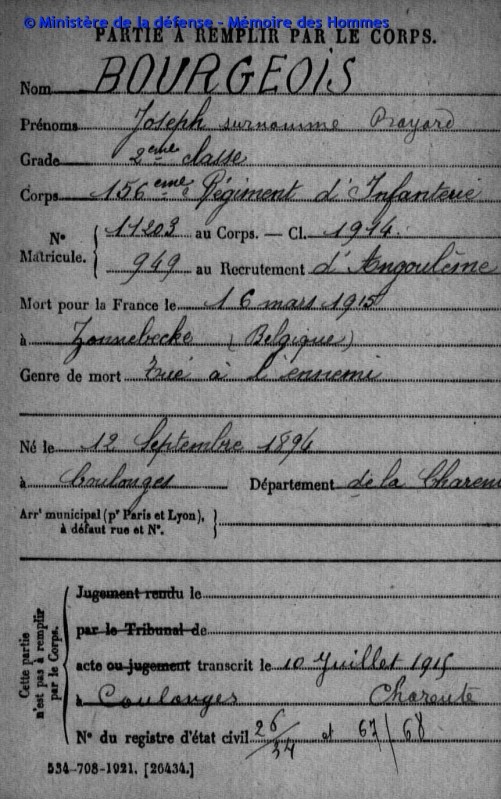 © Ministère de la défense - Mémoire des Hommes
PARTIE À REMPLIR PAR LE CORPS.
Nom BOURGEOIS
Prénoms Joseph surnomme Bayard
Grade 2eme classe
Corps 156eme Régiment d'Infanterie
N° Matricule. { 11203 au Corps. — Cl. 1914.
949 au Recrutement d'Angoulême
Mort pour la France le 16 mars 1915
à Zonnebecke (Belgique)
Genre de mort Tué à l'ennemi
Né le 12 Septembre 1894
à Coulonges Département de la Charen
Arrt municipal (pr Paris et Lyon), à défaut rue et N°. }
Cette partie n'est pas à remplir par le Corps.
Jugement rendu le
par le Tribunal de
acte ou jugement transcrit le 10 Juillet 1915
à Coulonges Charente
N° du registre d'état civil 26/34 et 67/68
534-708-1921. [26434.]